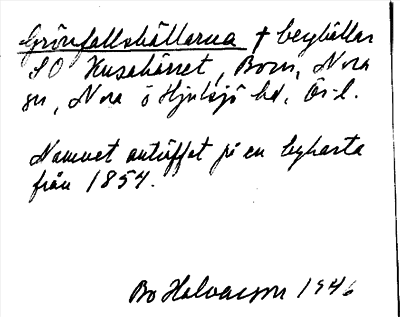 Grönfallshällarna † berghällar
SO Kusakärret, Born, Nora
sn, Nora o Hjulsjö hd. Ör. l.
Namnet anträffat på en bykarta
från 1854.
Bo Halvarson 1946